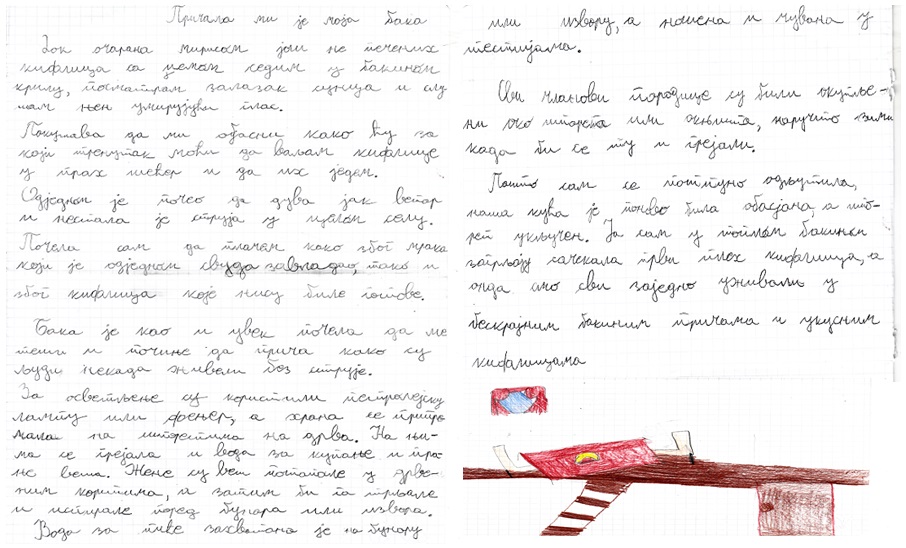 Причала ми је моја бака
Док очарана мирисом још не печених
кифлица са џемом седим у бакином
крилу, посматрам залазак сунца и слу
шам њен умирујући глас.
Покушава да ми објасни како ћу за
који тренутак моћи да ваљам кифлице
у прах шећер и да их једем.
Одједном је почео да дува јак ветар
и нестала је струја у целом селу.
Почела сам да плачем како због мрака
који је одједном свуда завладао, тако и
због кифлица које нису биле готове.
Бака је као и увек почела да ме
теши и почиње да прича како су
људи некада живели без струје.
За осветљење су користили петролејску
лампу или фењер, а храна се припре
мала на шпоретима на дрва. На њи-
ма се грејала и вода за купање и пра-
ње веша. Жене су веш потапале у дрве-
ним коритима, а затим би га трљале
и испирале поред бунара или извора.
Вода за пиће захватана је на бунару
или извору, а ношена и чувана у
тестијама.
Сви чланови породице су били окупље-
ни око шпорета или огњишта, наручто зими
када би се ту и грејали.
Пошто сам се потпуно одљутила,
наша кућа је поново била обасјана, а шпо-
рет укључен. Ја сам у топлом бакином
загрљају сачекала први плех кифлица, а
онда смо сви заједно уживали у
бескрајним бакиним причама и укусним
кифлицама